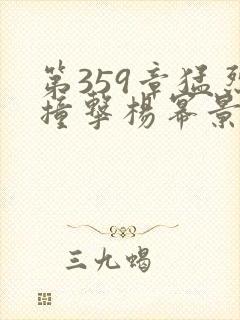 第359章猛烈
撞擊楊冪景
三九蝎